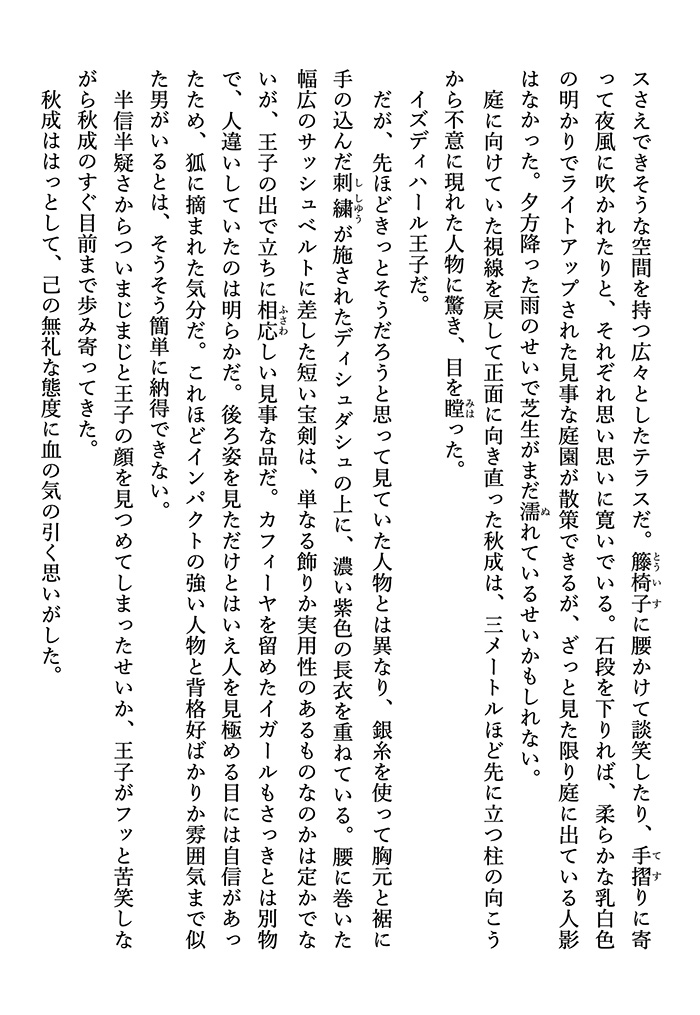 スさえできそうな空間を持つ広々としたテラスだ。籐椅子に腰かけて談笑したり、手摺りに寄
って夜風に吹かれたりと、それぞれ思い思いに寛いでいる。石段を下りれば、柔らかな乳白色
の明かりでライトアップされた見事な庭園が散策できるが、ざっと見た限り庭に出ている人影
はなかった。夕方降った雨のせいで芝生がまだ濡れているせいかもしれない。
庭に向けていた視線を戻して正面に向き直った秋成は、三メートルほど先に立つ柱の向こう
から不意に現れた人物に驚き、目を瞠った。
イズディハール王子だ。
だが、先ほどきっとそうだろうと思って見ていた人物とは異なり、銀糸を使って胸元と裾に
手の込んだ刺繍が施されたディシュダシュの上に、濃い紫色の長衣を重ねている。腰に巻いた
幅広のサッシュベルトに差した短い宝剣は、単なる飾りか実用性のあるものなのかは定かでな
いが、王子の出で立ちに相応しい見事な品だ。カフィーヤを留めたイガールもさっきとは別物
で、人違いしていたのは明らかだ。後ろ姿を見ただけとはいえ人を見極める目には自信があっ
たため、狐に摘まれた気分だ。これほどインパクトの強い人物と背格好ばかりか雰囲気まで似
た男がいるとは、そうそう簡単に納得できない。
半信半疑さからついまじまじと王子の顔を見つめてしまったせいか、王子がフッと苦笑しな
がら秋成のすぐ目前まで歩み寄ってきた。
秋成ははっとして、己の無礼な態度に血の気の引く思いがした。